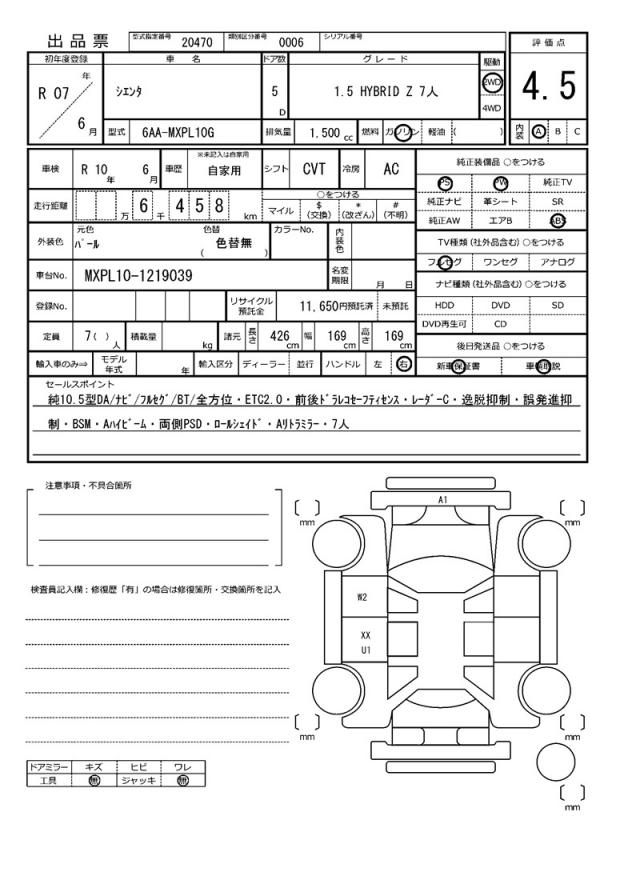 出品票 型式指定番号 20470 類別区分番号 0006 シリアル番号
初年度登録 車名 ドア数 グレード 駆動 評価点
R 07 年 6 月 シエンタ 5 D 1.5 HYBRID Z 7人 2WD 4WD 4.5
型式 6AA-MXPL10G 排気量 1.500 cc 燃料 ガソリン 軽油 ( ) 内装 A B C
車検 R 10 年 6 月 車歴 ※未記入は自家用 自家用 シフト CVT 冷房 AC
純正装備品 ○をつける
PS PW 純正TV
走行距離 万 6 千 4 5 8 km ○をつける
マイル $ (交換) * (改ざん) # (不明)
純正ナビ 革シート SR
純正AW エアB ABS
外装色 元色 パール 色替 ( 色替無 ) カラーNo. 内装色
TV種類 (社外品含む) ○をつける
フルセグ ワンセグ アナログ
車台No. MXPL10-1219039 名変期限 月 日
ナビ種類 (社外品含む) ○をつける
登録No. リサイクル預託金 11,650円預託済 未預託
HDD DVD SD
DVD再生可 CD
定員 7( ) 人 積載量 kg 諸元 長さ 426 cm 幅 169 cm 高さ 169 cm
後日発送品 ○をつける
輸入車のみ⇒ モデル年式 年 輸入区分 ディーラー 並行 ハンドル 左 右
新車保証書 車輌取説
セールスポイント
純10.5型DA/ナビ/フルセグ/BT/全方位・ETC2.0・前後ドラレコセーフティセンス・レーダーC・逸脱抑制・誤発進抑
制・BSM・Aハイビーム・両側PSD・ロールシェイド・Aリトラミラー・7人
注意事項・不具合箇所
検査員記入欄:修復歴「有」の場合は修復箇所・交換箇所を記入
A1
mm mm
W2
XX
U1
mm mm
mm
ドアミラー キズ ヒビ ワレ
工具 無 ジャッキ 無